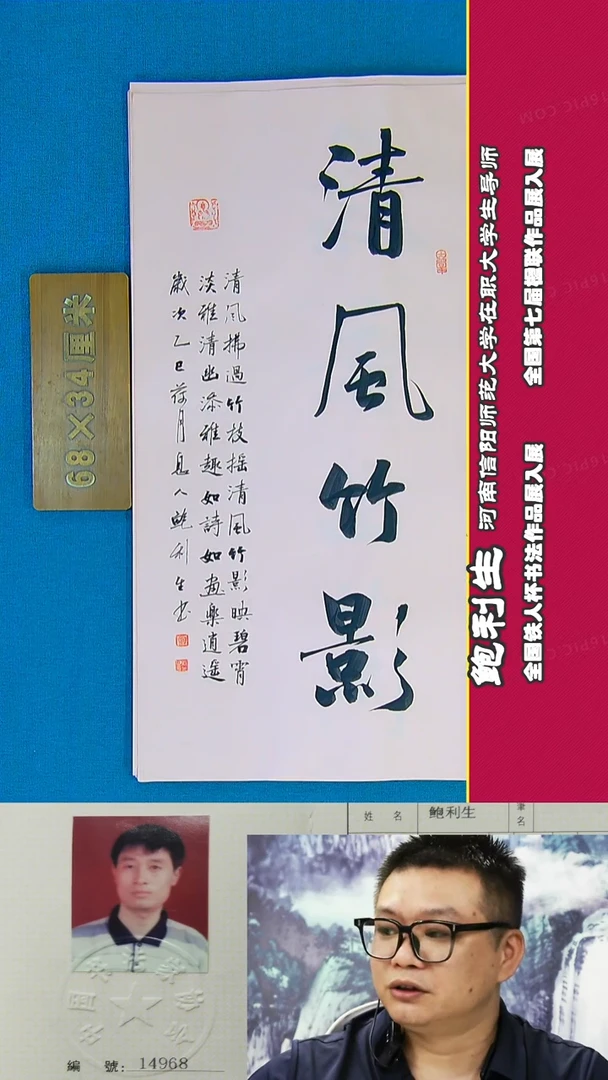 清風竹影
清風拂過竹枝摇清風竹影映碧霄
淡雅清幽添雅趣如詩如畫樂逍遥
歲次乙巳荷月息人鮑利生书
68×34厘米
鲍利生 河南信阳师范大学在职大学生导师
全国铁人杯书法作品展入展 全国第七届楹联作品展入展
姓 名 鲍利生 筆名
編 號: 14968